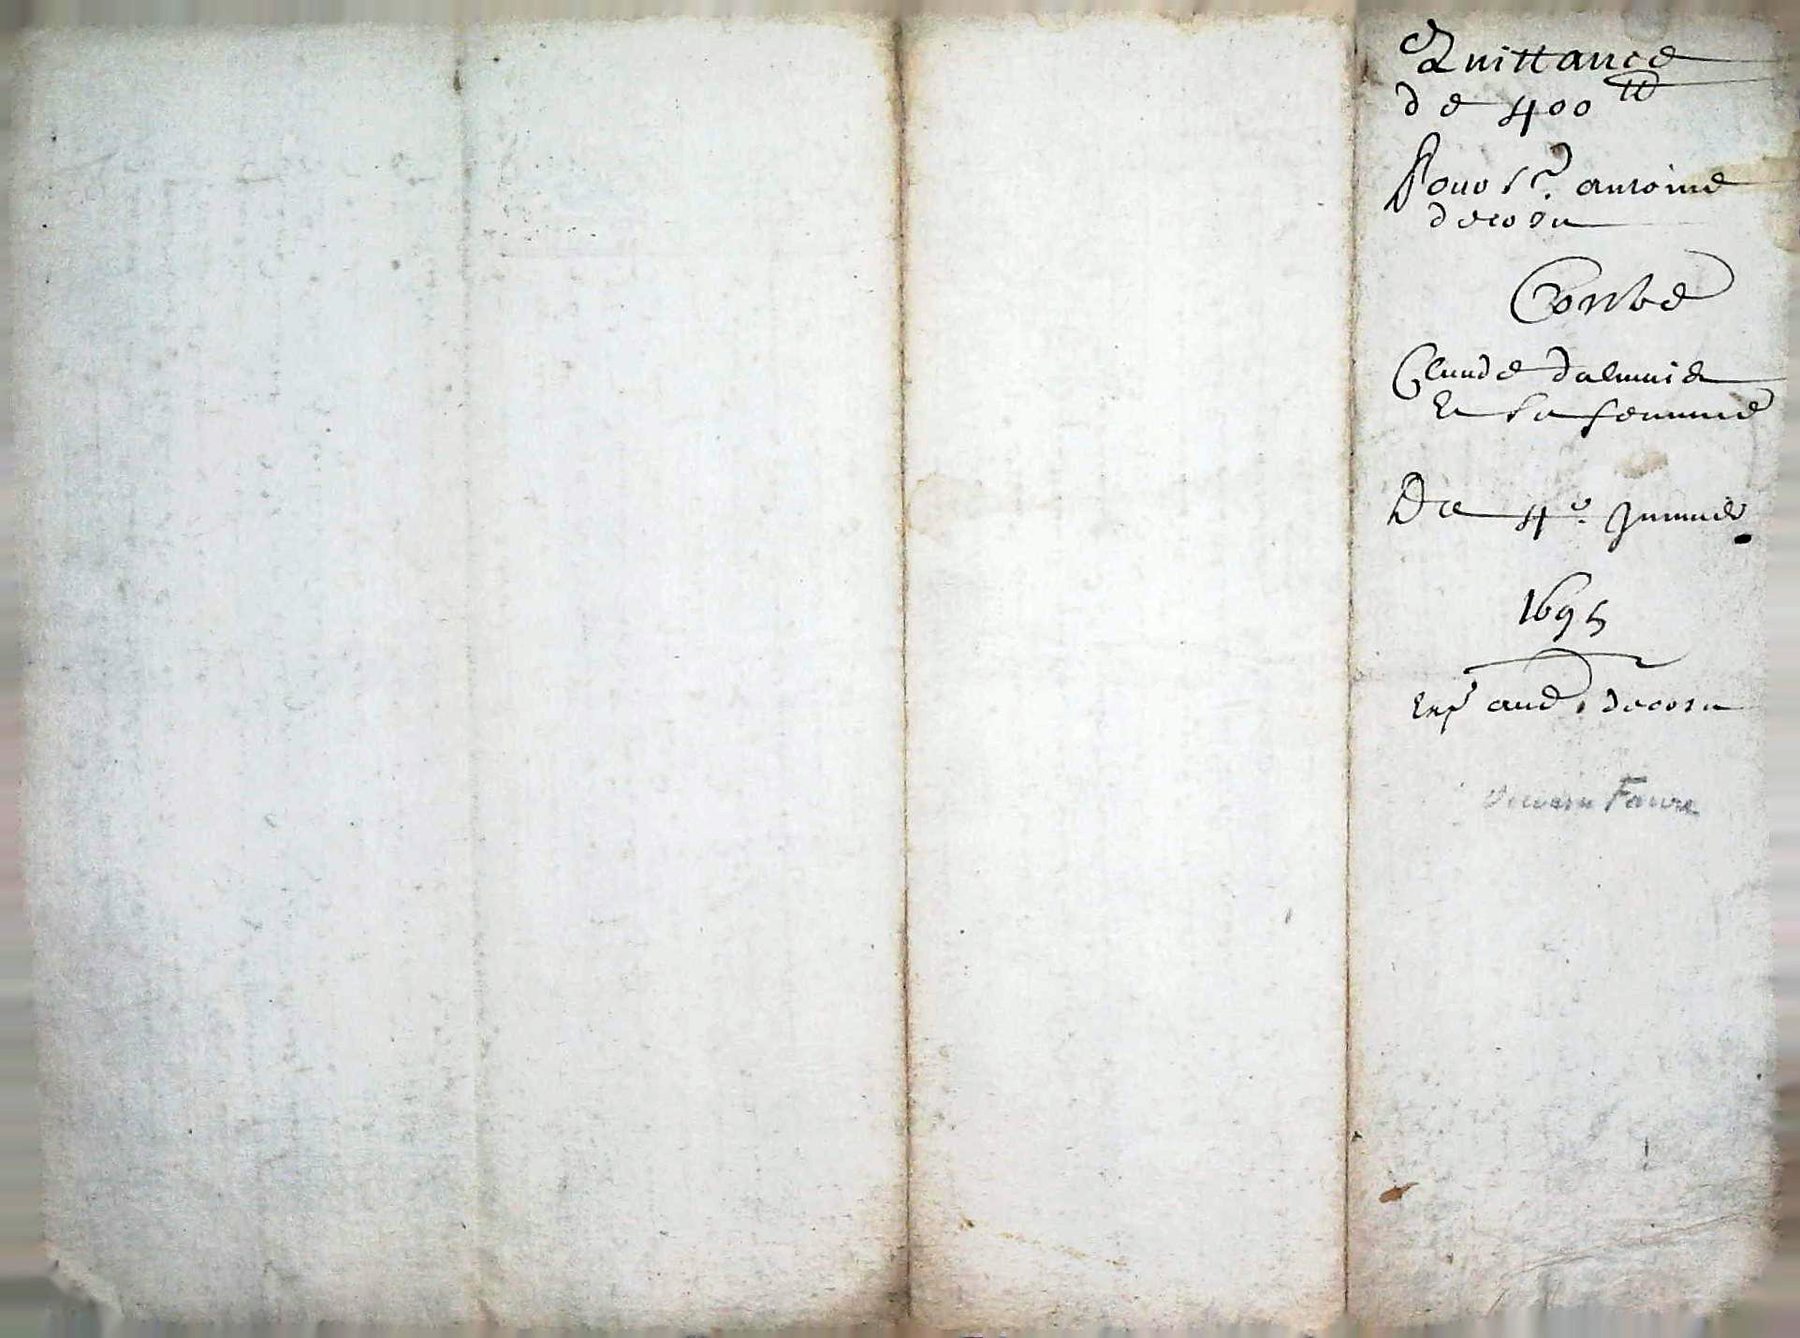 Quittance
de 400 tt
Pour sr. antoine
decora
Contre
Claude dalmais
Et sa femme
Du 4e. Janvier
1695
Expt aud. decora
Faure